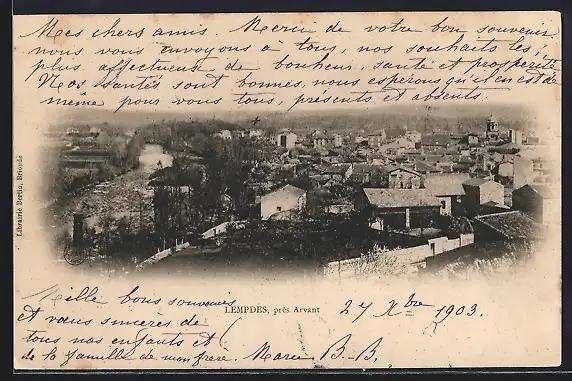 Mes chers amis. Merci de votre bon souvenir
nous vous envoyons à tous, nos souhaits les,
plus affectueux de bonheur, santé et prospérité
Nos santés sont bonnes, nous espérons qu'il en est de
même pour vous tous, présents et absents.
Librairie Berlin, Brioude
LEMPDES, près Arvant
27 Xbre 1903.
Mille bons souvenirs
et vœux sincères de
tous nos enfants et
de la famille de mon frère.
Marie B. B.